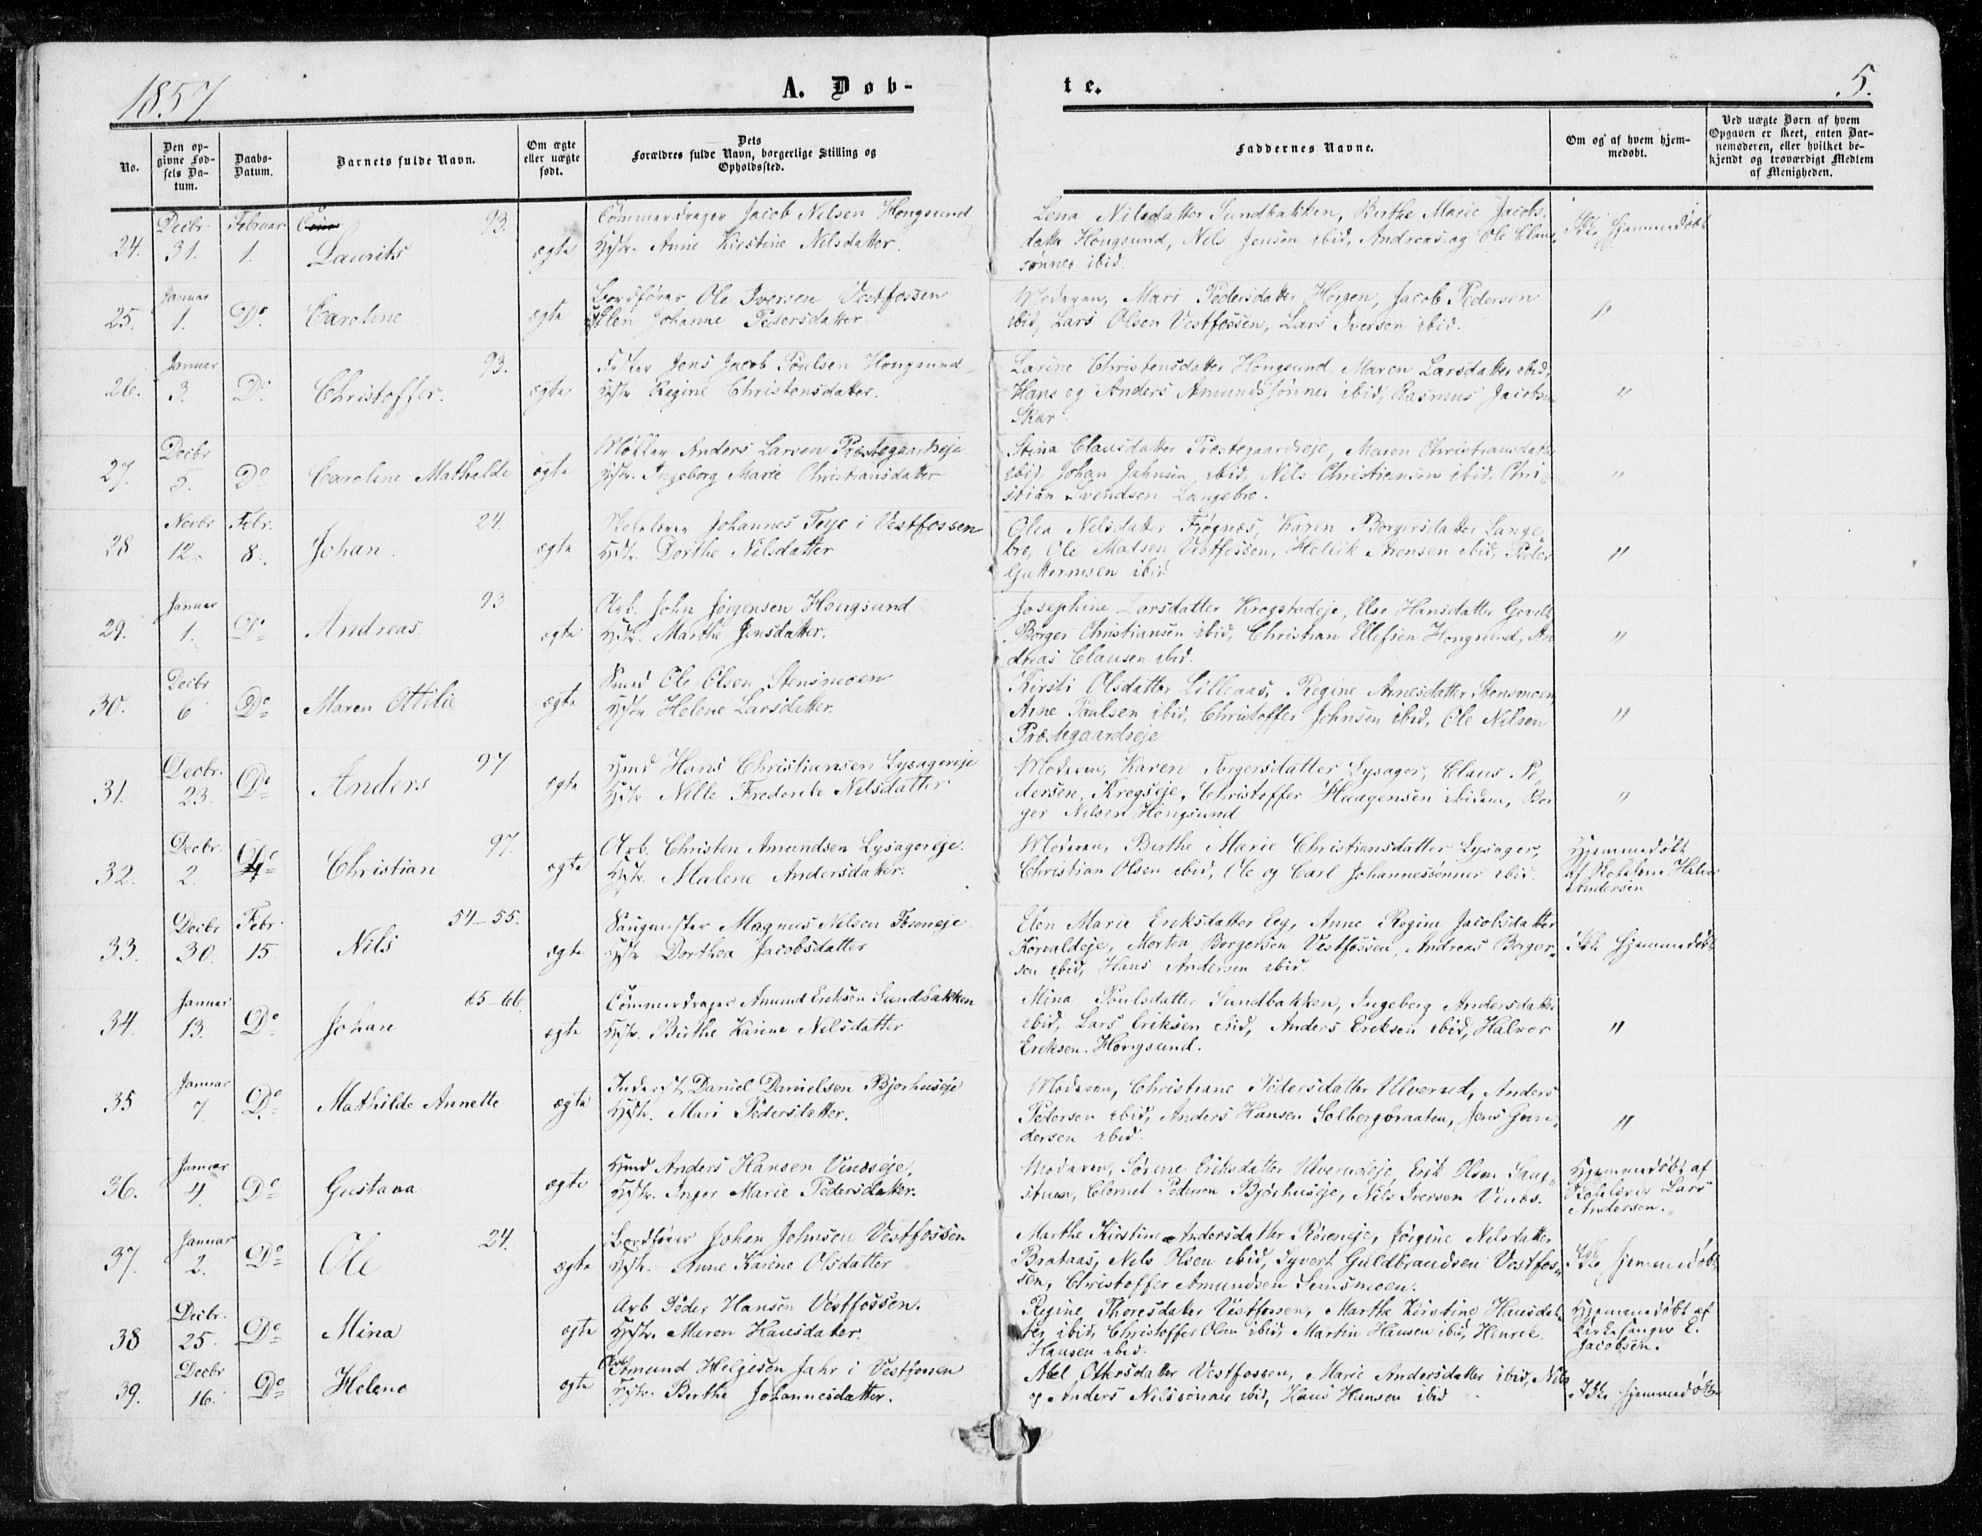 1857.
A. Døb-
te.
5.
No.
Den op-
givne Fød-
sels Da-
tum.
Daabs-
Datum.
Barnets fulde Navn.
Om ægte
eller uægte
født.
Dets
Forældres fulde Navn, borgerlige Stilling og
Opholdssted.
Faddernes Navne.
Om og af hvem hjem-
medøbt.
Ved uægte Børn af hvem
Opgaven er skeet, enten Bar-
nemoderen, eller hvilket be-
kjendt og troværdigt Medlem
af Menigheden.
24. Decbr. 31. Februar 1. Laurits 93. ægte
Tømmerdrager Jacob Nilsen Hougsund
Hstr. Anne Kirstine Nilsdatter.
Lena Nilsdatter Sundbakken, Berthe Marie Jacobs-
datter Hougsund, Nils Jensen ibid, Andreas og Ole Claus-
sønner ibid.
Ikke hjemmedøbt
25. Januar 1. Do. Caroline ægte
Bordfører Ole Iversen Vestfossen
Elen Johanne Pedersdatter
Moderen, Mari Pedersdatter Horgen, Jacob Pedersen
ibid, Lars Olsen Vestfossen, Lars Iversen ibid.
"
26. Januar 3. Do. Christoffer. 93. ægte
Jens Jacob Poulsen Hougsund
Hstr. Regine Christensdatter.
Larine Christensdatter Hougsund, Maren Larsdatter ibid,
Hans og Anders Amundssønner ibid, Rasmus Jacobsen
Skar
"
27. Decbr 5. Do Caroline Mathilde ægte
Møller Anders Larsen Præstegaardseje
Hstr. Ingeborg Marie Christiansdatter
Stina Clausdatter Præstegaardseje, Maren Christiansdatter
ibid, Johan Johnsen ibid, Nils Christiansen ibid, Chri-
stian Svendsen Langebro.
"
28 Novbr 12. Febr. 8. Johan. 24. ægte
Johannes Teje i Vestfossen
Hstr. Dorthe Nilsdatter
Olea Nilsdatter Frøgnæs, Karen Borgersdatter Lange-
bro, Ole Matsen Vestfossen, Hellik ibid, Peder
Guttormsen ibid
"
29. Januar 1. Do Andreas. 93. ægte
Arb. John Jørgensen Hougsund
Hstr. Marthe Jensdatter.
Josephine Larsdatter Krogstadeje, Else Hansdatter
Borger Christiansen ibid, Christian Ellefsen Hougsund, An-
dreas Clausen ibid.
"
30. Decbr 6 Do Maren Ottilie ægte
Ole Olsen Stensmoen
Hstr Helene Larsdatter.
Kirsti Olsdatter Lilleaas, Regine Arnesdatter Stensmoen,
Arne Paulsen ibid, Christoffer Johnsen ibid, Ole Nilsen
Præstegaardseje
"
31. Decbr. 23. Do Anders 97 ægte
Hmd Hans Christiansen Lysagereje
Hstr. Nille Frederike Nilsdatter
Moderen, Karen Borgersdatter Lysager, Claus Pe-
dersen, Krogseje, Christoffer Haagensen ibidem, Bor
ger Nilsen Hougsund
"
32. Decbr. 2. Do Christian 97. ægte
Arb. Christen Amundsen Lysagereje.
Hstr. Malene Andersdatter.
Moderen, Berthe Marie Christiansdatter Lysager,
Christian Olsen ibid, Ole og Carl Johannessønner ibid.
Hjemmedøbt
af Skolelærer Halvor
Andersen
33. Decbr 30. Febr. 15. Nils 54-55. ægte
Saugmester Magnus Nilsen Foseneje
Hstr Dorthea Jacobsdatter
Elen Marie Eriksdatter Eeg, Anne Regine Jacobsdatter
Korvaldeje, Morten Borgersen Vestfossen, Andreas Borger-
sen ibid, Hans Andersen ibid.
Ikke hjemmedøbt
34. Januar 13. Do Johan 65-66. ægte
Tømmerdrager Amund Eriksen Sundbakken
Hstr. Birthe Karine Nilsdatter
Mina Poulsdatter Sundbakken, Ingeborg Andersdatter
ibid, Lars Eriksen ibid, Anders Eriksen ibid, Halvor
Eriksen Hougsund.
"
35 Januar 7 Do Mathilde Annette ægte
Inderst Daniel Danielsen Bjørhuseje
Hstr. Mari Pedersdatter.
Moderen, Christiane Pedersdatter Ulverud, Anders
Pedersen ibid, Anders Hansen Solbergbraaten, Jens Gun-
dersen ibid.
"
36. Januar 4. Do Gustava ægte
Hmd Anders Hansen Vinæseje,
Hstr. Inger Marie Pedersdatter.
Moderen, Sørine Eriksdatter Ulverudeje, Erik Olsen Saug-
stuen, Clemet Pedersen Bjørhuseje, Nils Iversen Vinæs.
Hjemmedøbt af
Skolelærer Lars
Andersen.
37. Januar 2. Do Ole 24. ægte
Bordfører Johan Johnsen Vestfossen
Hstr. Anne Karine Olsdatter
Marthe Kirstine Andersdatter Røreneje, Jørgine Nilsdatter
Brataas, Nils Olsen ibid, Syvert Guldbrandsen Vestfos-
sen, Christoffer Amundsen Semsmoen.
Ikke hjemmedøbt
38 Decbr. 25. Do Mina ægte
Arb Peder Hansen Vestfossen.
Hstr. Maren Hansdatter.
Regine Thoresdatter Vestfossen, Marthe Kirstine Hansdat-
ter ibid, Christoffer Olsen ibid, Martin Hansen ibid, Henrik
Hansen ibid.
Hjemmedøbt af
Kirkesanger E.
Jacobsen.
39. Decbr 16. Do Helene ægte
Amund Helgesen Jahr i Vestfossen
Hstr. Berthe Johannesdatter.
Abel Ottersdatter Vestfossen, Marie Andersdatter ibid, Nils
og Anders Nilssønner ibid, Hans Hansen ibid
Ikke hjemmedøbt